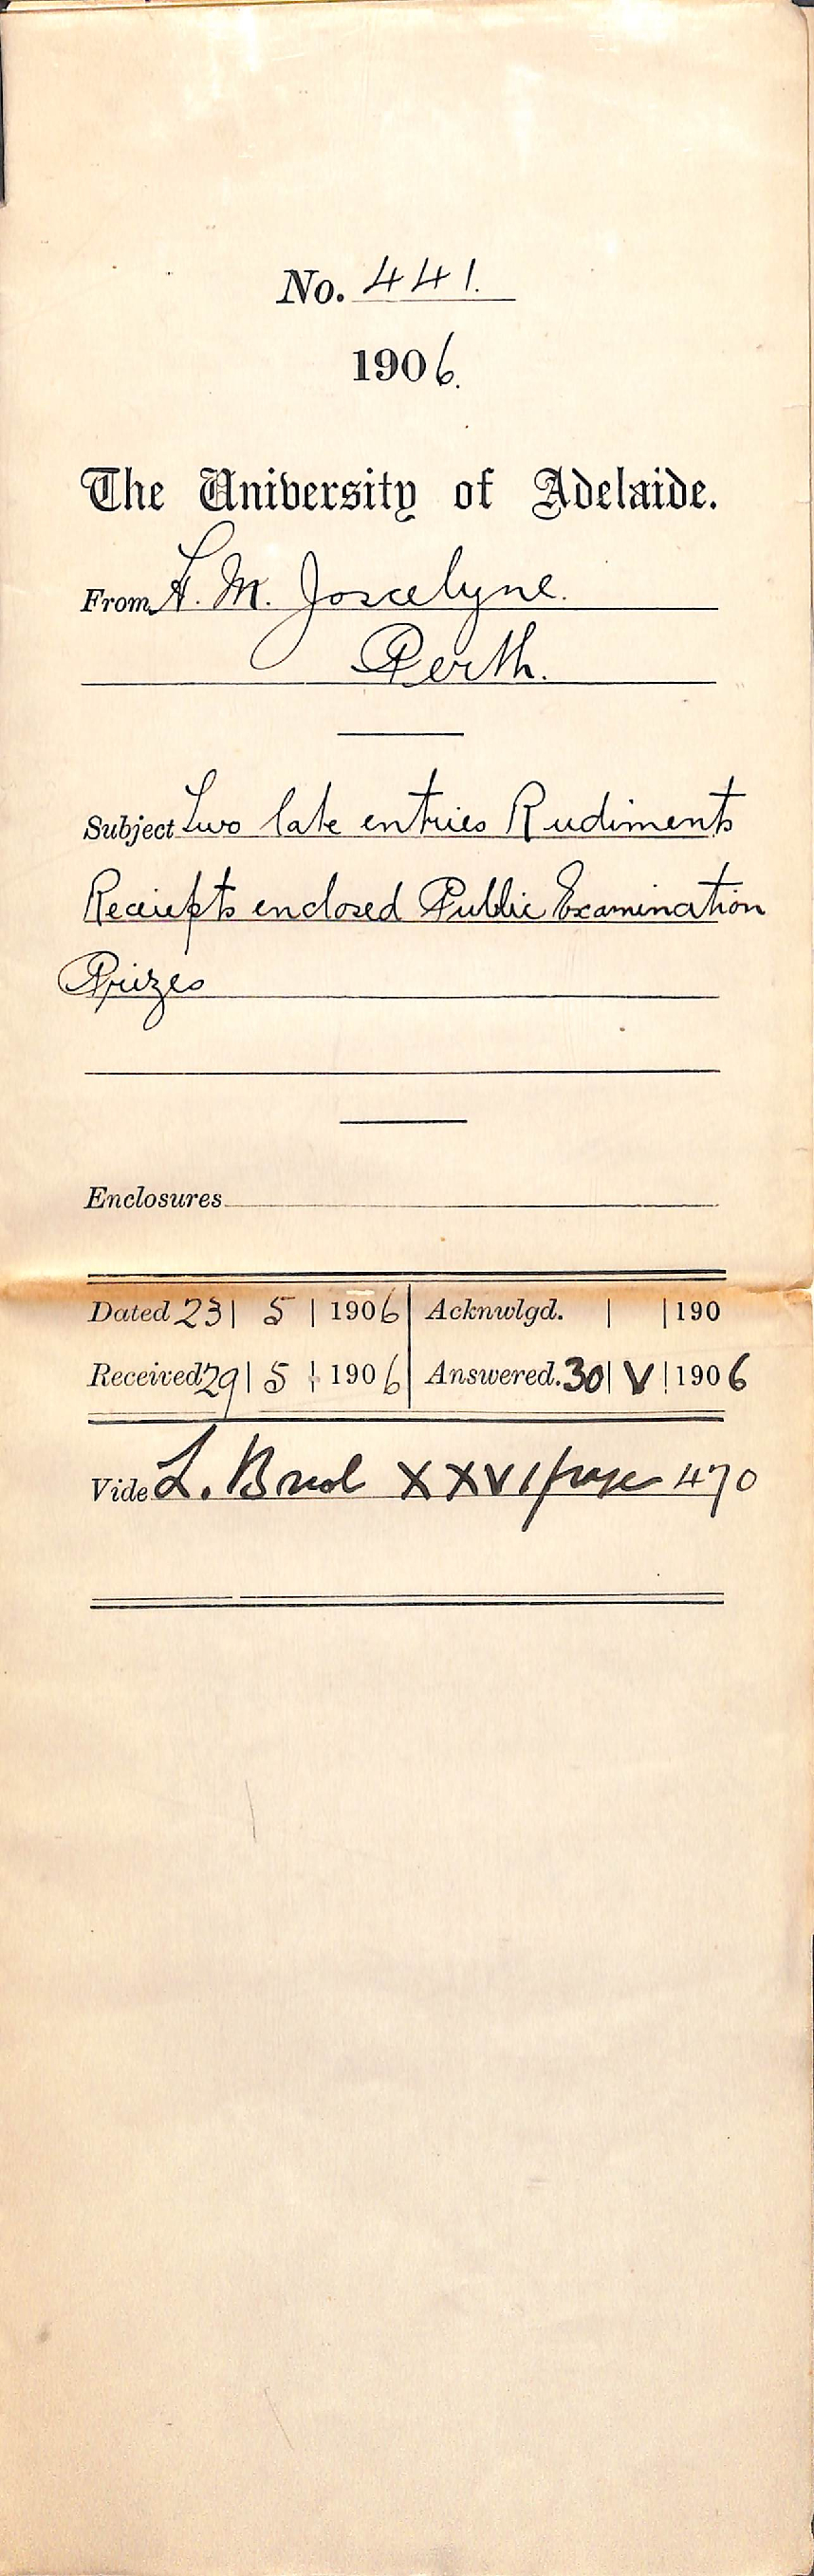 No. 441.
1906.
The University of Adelaide.
From H. M. Joscelyne.
Perth.
Subject Two late entries Rudiments
Receipts enclosed Public Examination
Prizes
Enclosures
Dated 23 | 5 | 1906 | Acknwlgd. | | 190
Received 29 | 5 | 1906 | Answered. 30 | V | 1906
Vide L. XXVI page 470